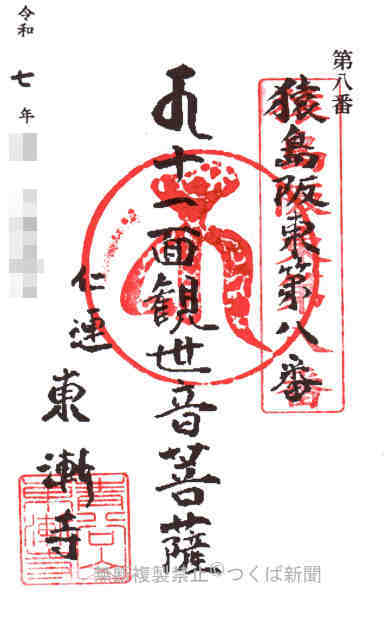 第八番
猿島阪東第八番
十一面観世音菩薩
仁連
東漸寺
令和
七
年
無断複製禁止©つくば新聞